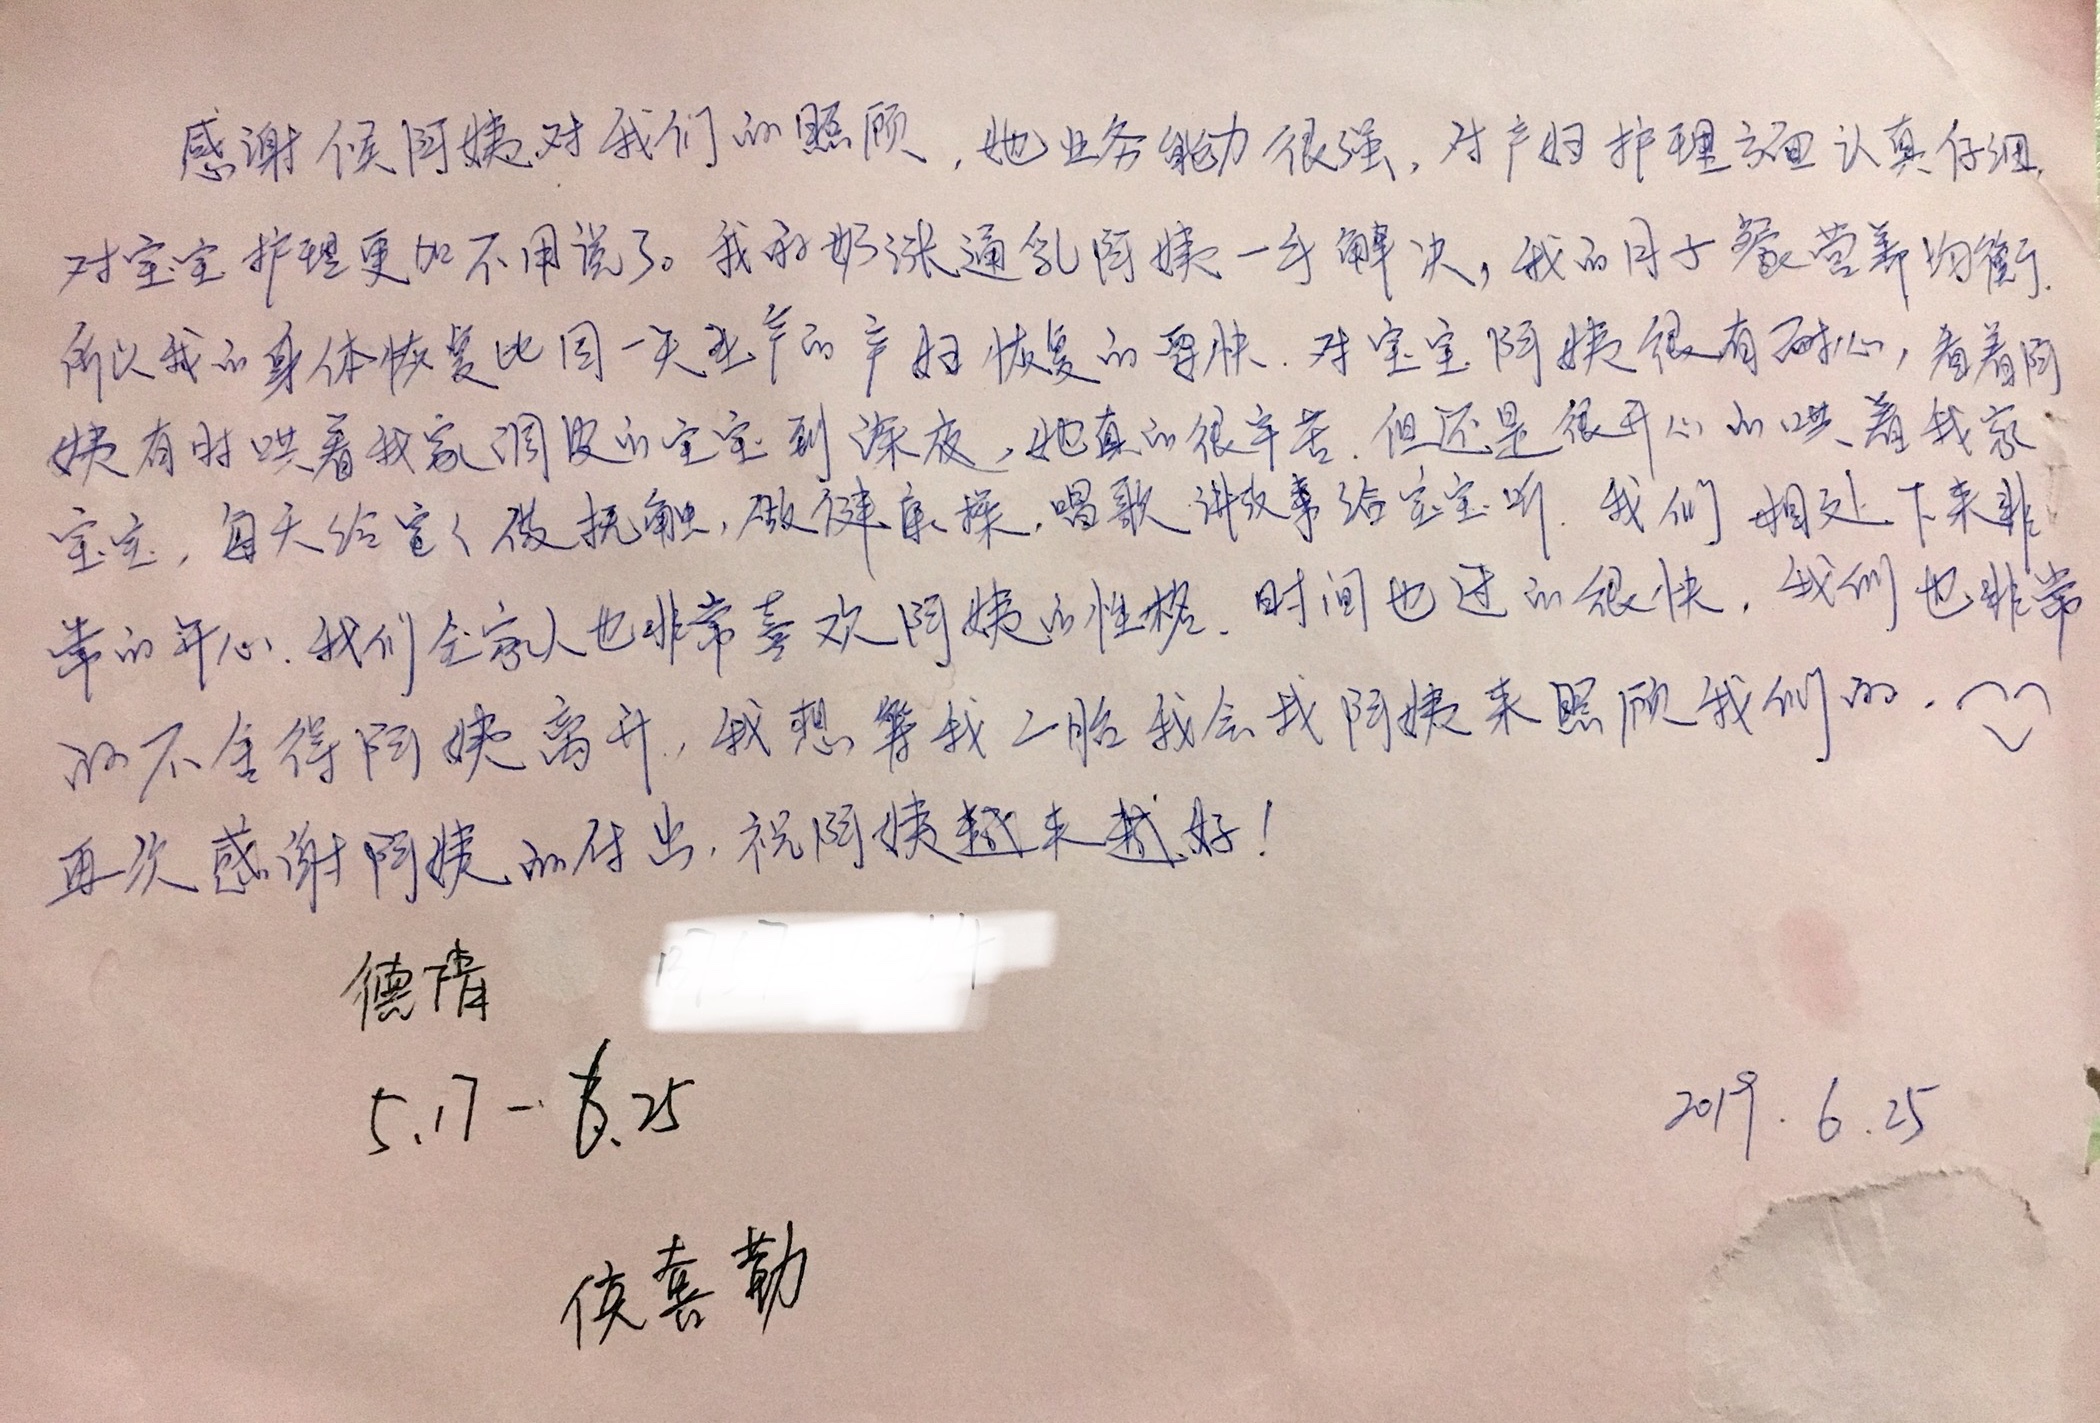 感谢候阿姨对我们的照顾，她业务能力很强，对产妇护理方面认真仔细，
对宝宝护理更加不用说了。我的奶涨通乳阿姨一手解决，我的月子餐营养均衡.
所以我的身体恢复比同一天生产的产妇恢复的要快.对宝宝阿姨很有耐心，看着阿
姨有时哄着我家调皮的宝宝到深夜，她真的很辛苦.但还是很开心的哄着我家
宝宝，每天给宝く做抚触，做健康操，唱歌讲故事给宝宝听.我们相处下来非
常的开心.我们全家人也非常喜欢阿姨的性格.时间也过的很快，我们也非常
的不舍得阿姨离开，我想等我二胎我会找阿姨来照顾我们的.
再次感谢阿姨的付出，祝阿姨越来越好！
德清
5.17-6.25
2019.6.25
侯喜勤